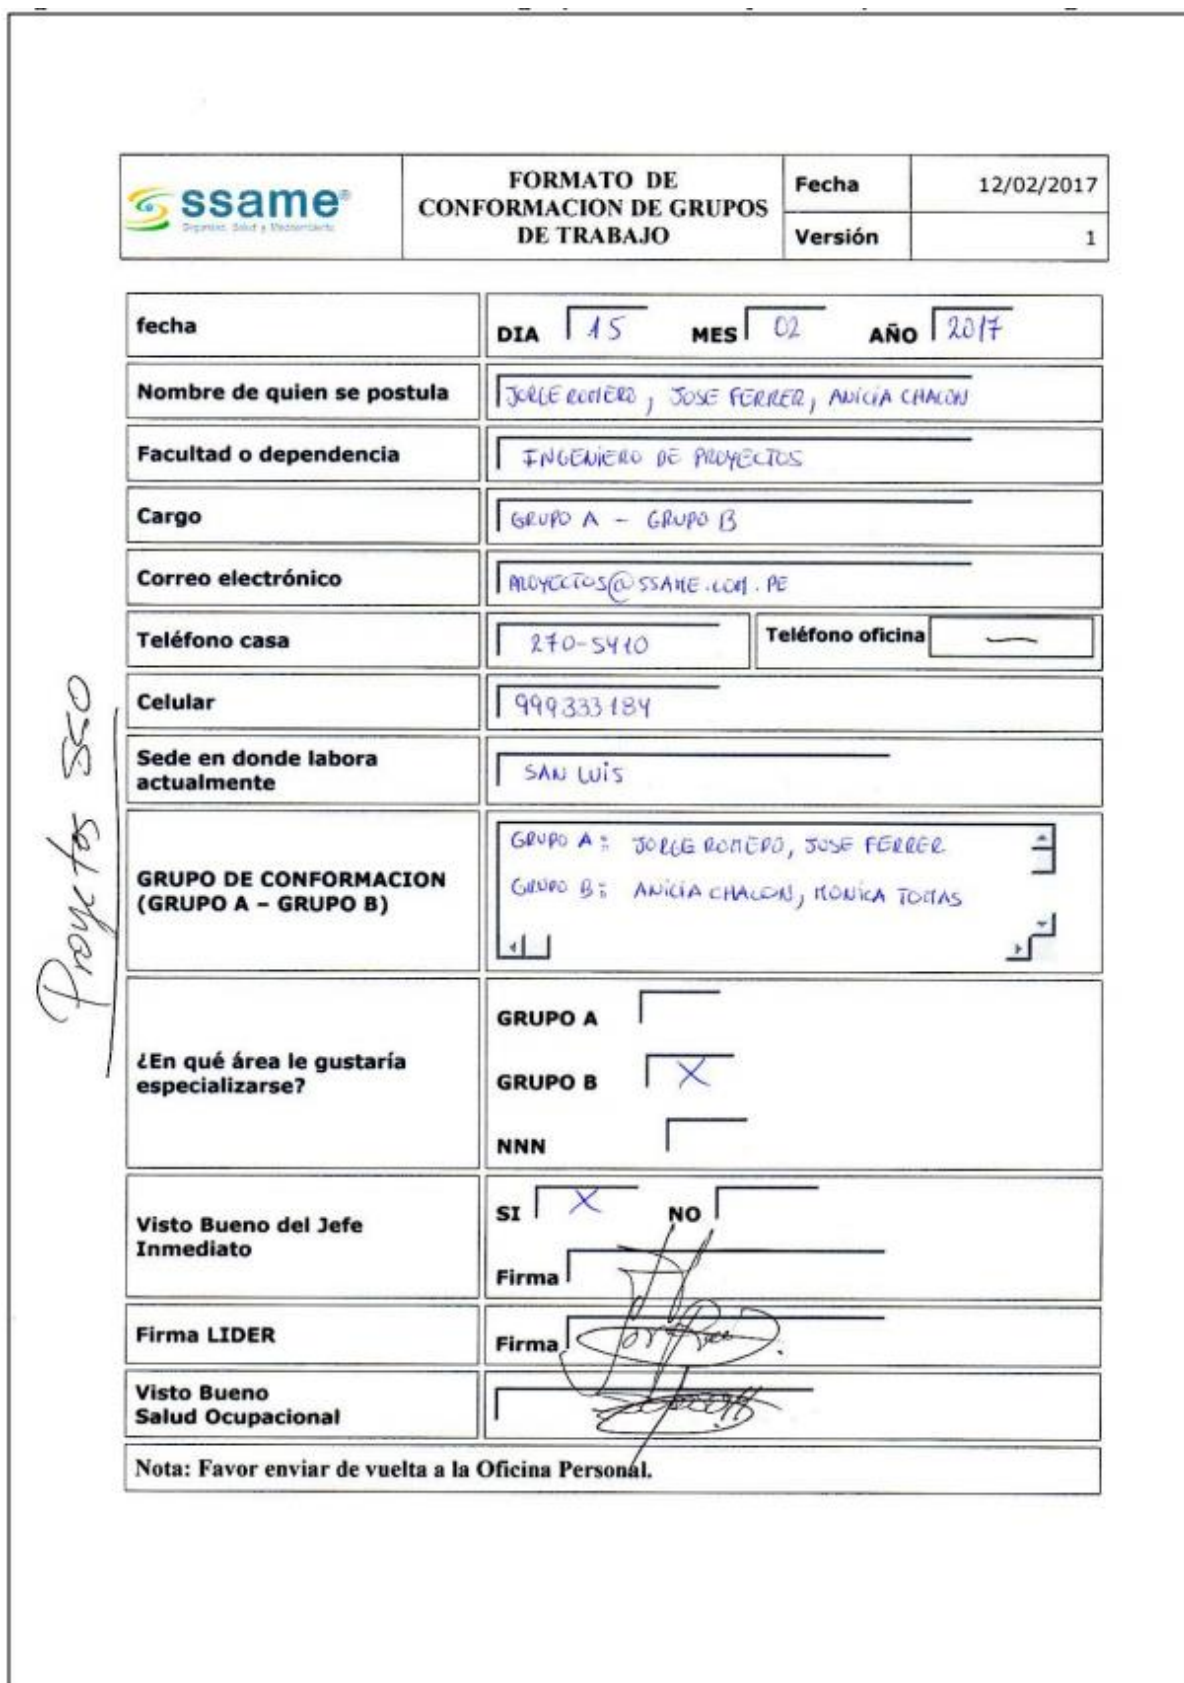 ssame®
Seguridad, Salud y Medioambiente
FORMATO DE
CONFORMACION DE GRUPOS
DE TRABAJO
Fecha 12/02/2017
Versión 1
fecha DIA 15 MES 02 AÑO 2017
Nombre de quien se postula JORGE ROMERO, JOSE FERRER, ANICIA CHACON
Facultad o dependencia INGENIERO DE PROYECTOS
Cargo GRUPO A - GRUPO B
Correo electrónico PROYECTOS@SSAME.COM.PE
Teléfono casa 270-5410 Teléfono oficina —
Celular 999333184
Sede en donde labora
actualmente
SAN LUIS
GRUPO DE CONFORMACION
(GRUPO A – GRUPO B)
GRUPO A: JORGE ROMERO, JOSE FERRER
GRUPO B: ANICIA CHACON, MONICA TOMAS
¿En qué área le gustaría
especializarse?
GRUPO A
GRUPO B X
NNN
Visto Bueno del Jefe
Inmediato
SI X NO
Firma
Firma LIDER Firma
Visto Bueno
Salud Ocupacional
Nota: Favor enviar de vuelta a la Oficina Personal.
Proyectos SSO